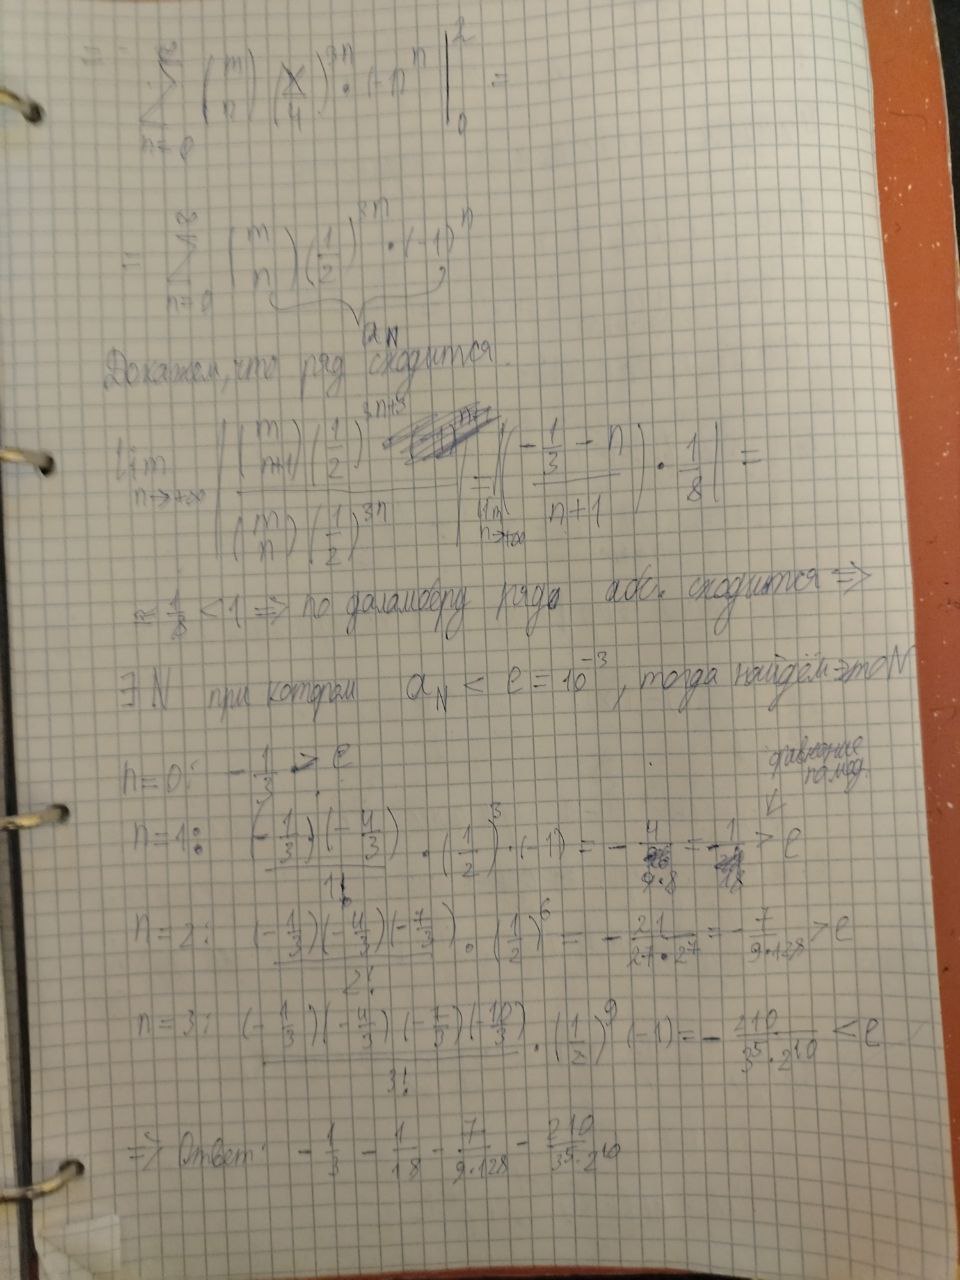 = \sum_{n=0}^{\infty} \binom{m}{n} \left(\frac{x}{4}\right)^{3n} \cdot (-1)^n \Big|_0^2 =
= \sum_{n=0}^{\infty} \binom{m}{n} \left(\frac{1}{2}\right)^{3n} \cdot (-1)^n
a_N
Докажем, что ряд сходится.
\lim_{n \to +\infty} \left| \frac{\binom{m}{n+1} \left(\frac{1}{2}\right)^{3n+3}}{\binom{m}{n} \left(\frac{1}{2}\right)^{3n}} \right| = \lim_{n \to +\infty} \left| \left( \frac{-\frac{1}{3} - n}{n+1} \right) \cdot \frac{1}{8} \right| =
= \frac{1}{8} < 1 => по даламберу ряд абс. сходится =>
∃ N при котором a_N < e = 10^{-3}, тогда найдём это N
сравнение по мод.
n=0: -\frac{1}{3} > e
n=1: \frac{(-\frac{1}{3})(-\frac{4}{3})}{1!} \cdot \left(\frac{1}{2}\right)^3 \cdot (-1) = -\frac{4}{9 \cdot 8} = -\frac{1}{18} > e
n=2: \frac{(-\frac{1}{3})(-\frac{4}{3})(-\frac{7}{3})}{2!} \cdot \left(\frac{1}{2}\right)^6 = -\frac{21}{27 \cdot 27} = -\frac{7}{9 \cdot 128} > e
n=3: \frac{(-\frac{1}{3})(-\frac{4}{3})(-\frac{7}{3})(-\frac{10}{3})}{3!} \cdot \left(\frac{1}{2}\right)^9 (-1) = -\frac{210}{3^5 \cdot 2^{10}} < e
=> Ответ: -\frac{1}{3} - \frac{1}{18} - \frac{7}{9 \cdot 128} - \frac{210}{3^5 \cdot 2^{10}}